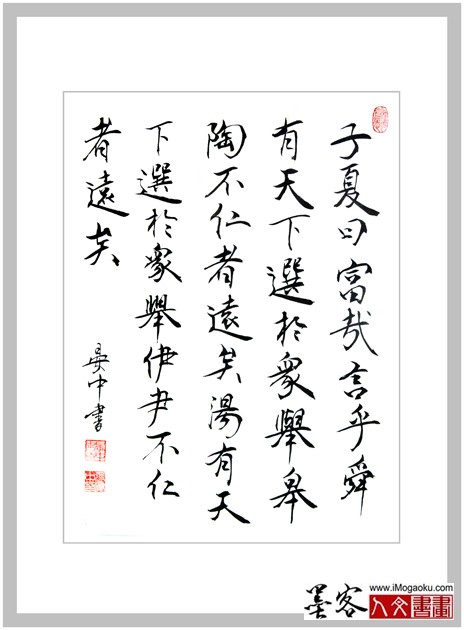 子夏曰富哉言乎舜
有天下選於衆舉皋
陶不仁者遠矣湯有天
下選於衆舉伊尹不仁
者遠矣
晏中書
墨客
www.iMogaoku.com
人文書畫